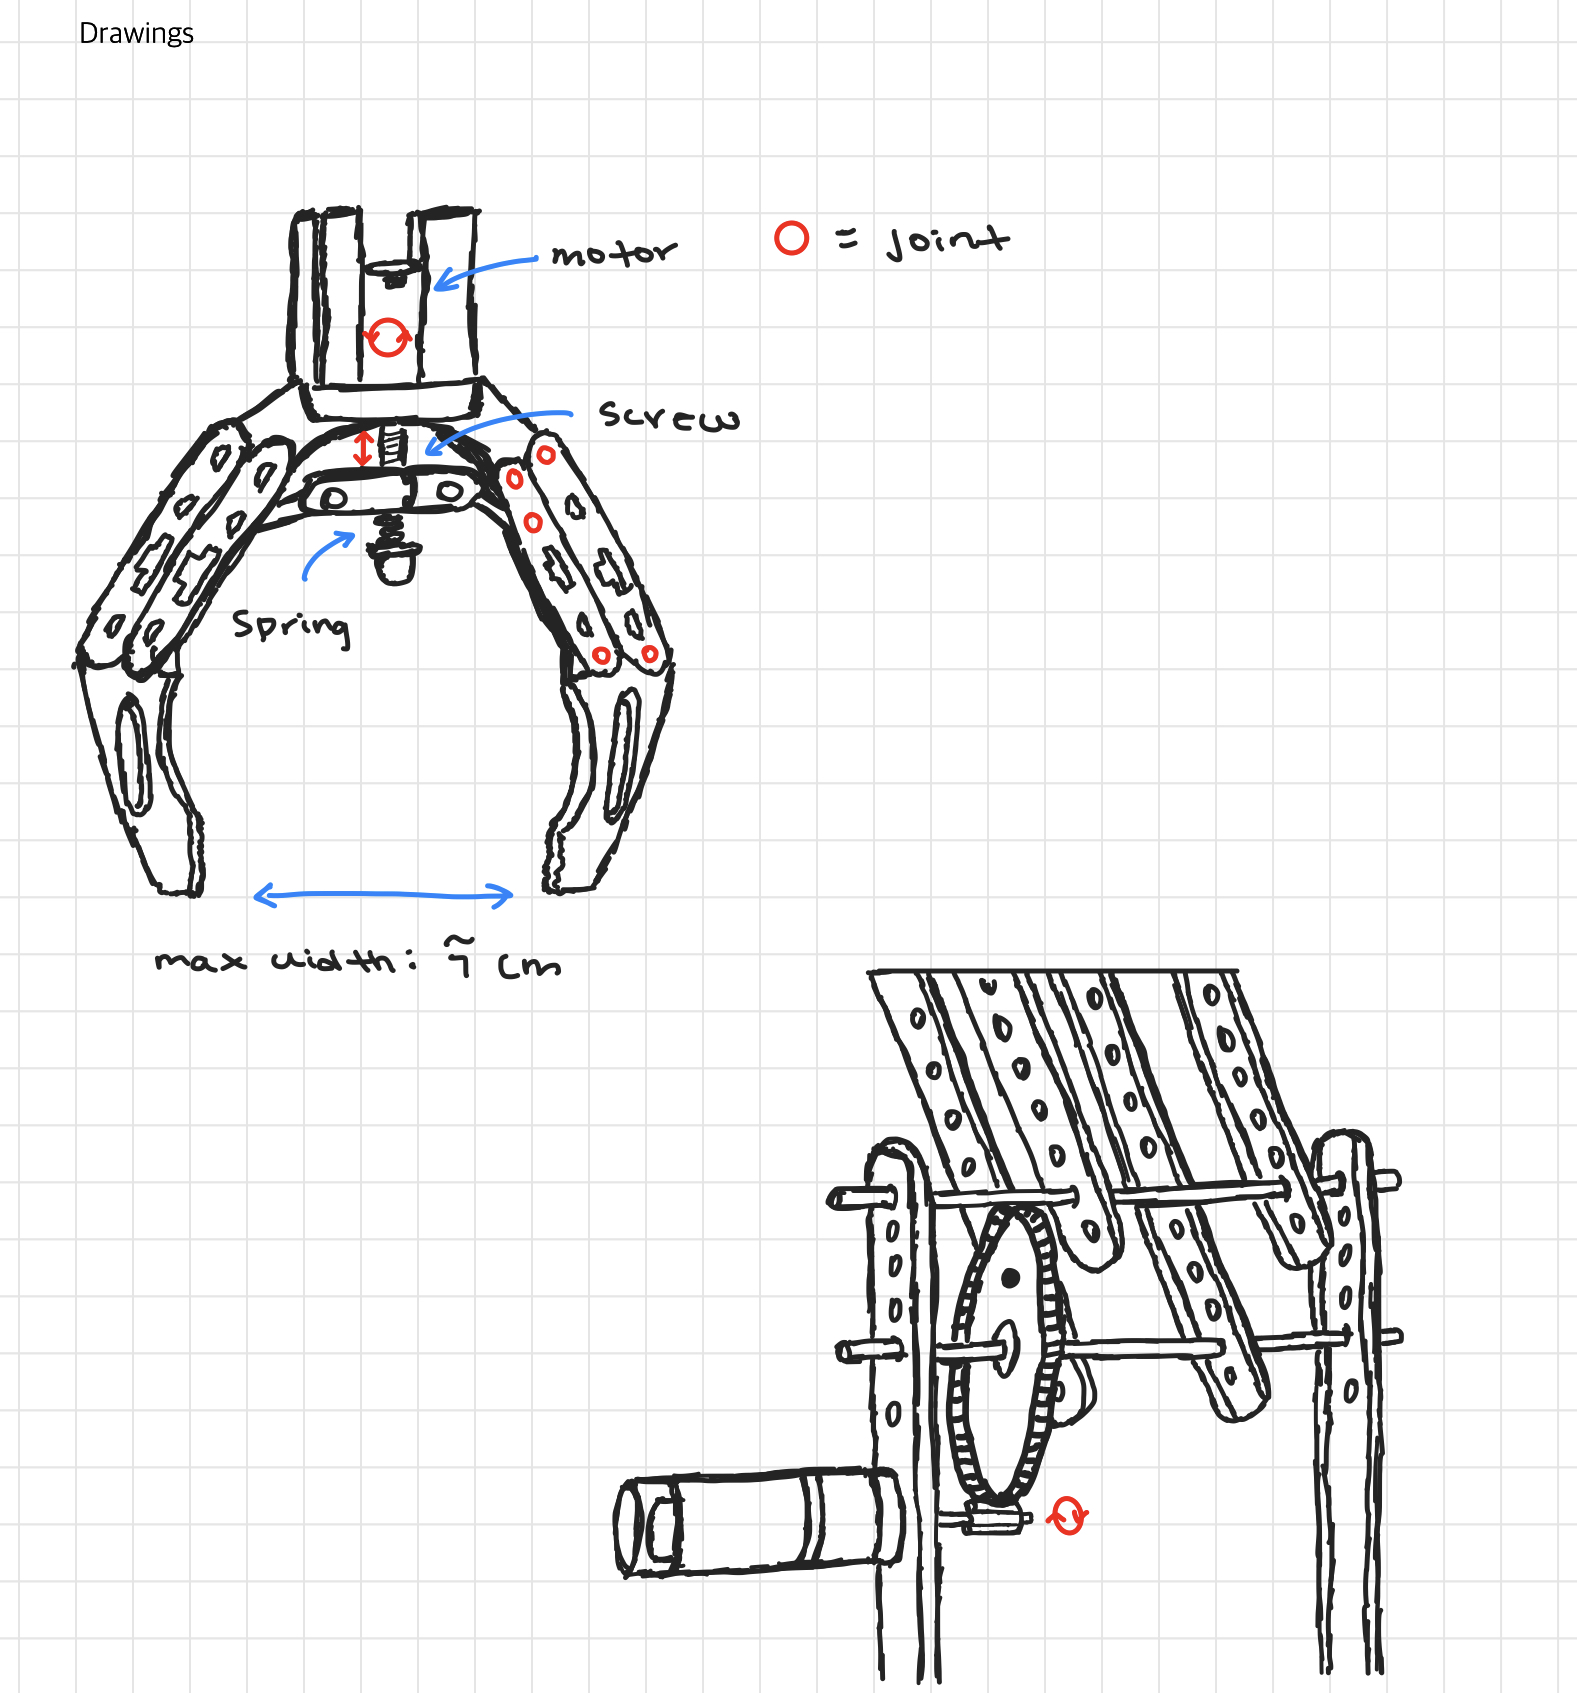 Drawings
motor
= joint
screw
spring
max width: ~7 cm